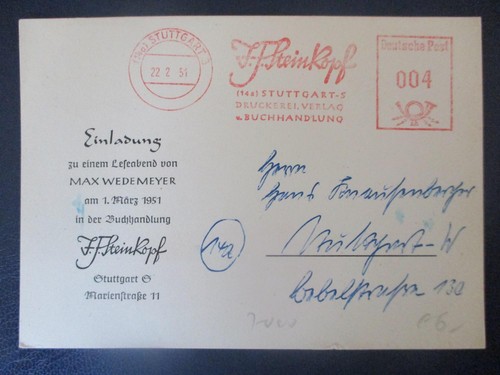 (14a) STUTTGART 5
22.2.51
J.F. Steinkopf
(14a) STUTTGART-S
DRUCKEREI, VERLAG
u. BUCHHANDLUNG
Deutsche Post
004
Einladung
zu einem Leseabend von
MAX WEDEMEYER
am 1. März 1951
in der Buchhandlung
J.F. Steinkopf
Stuttgart S
Marienstraße 11
Herrn
Hans
14a
Stuttgart-W
Bebelstraße 130